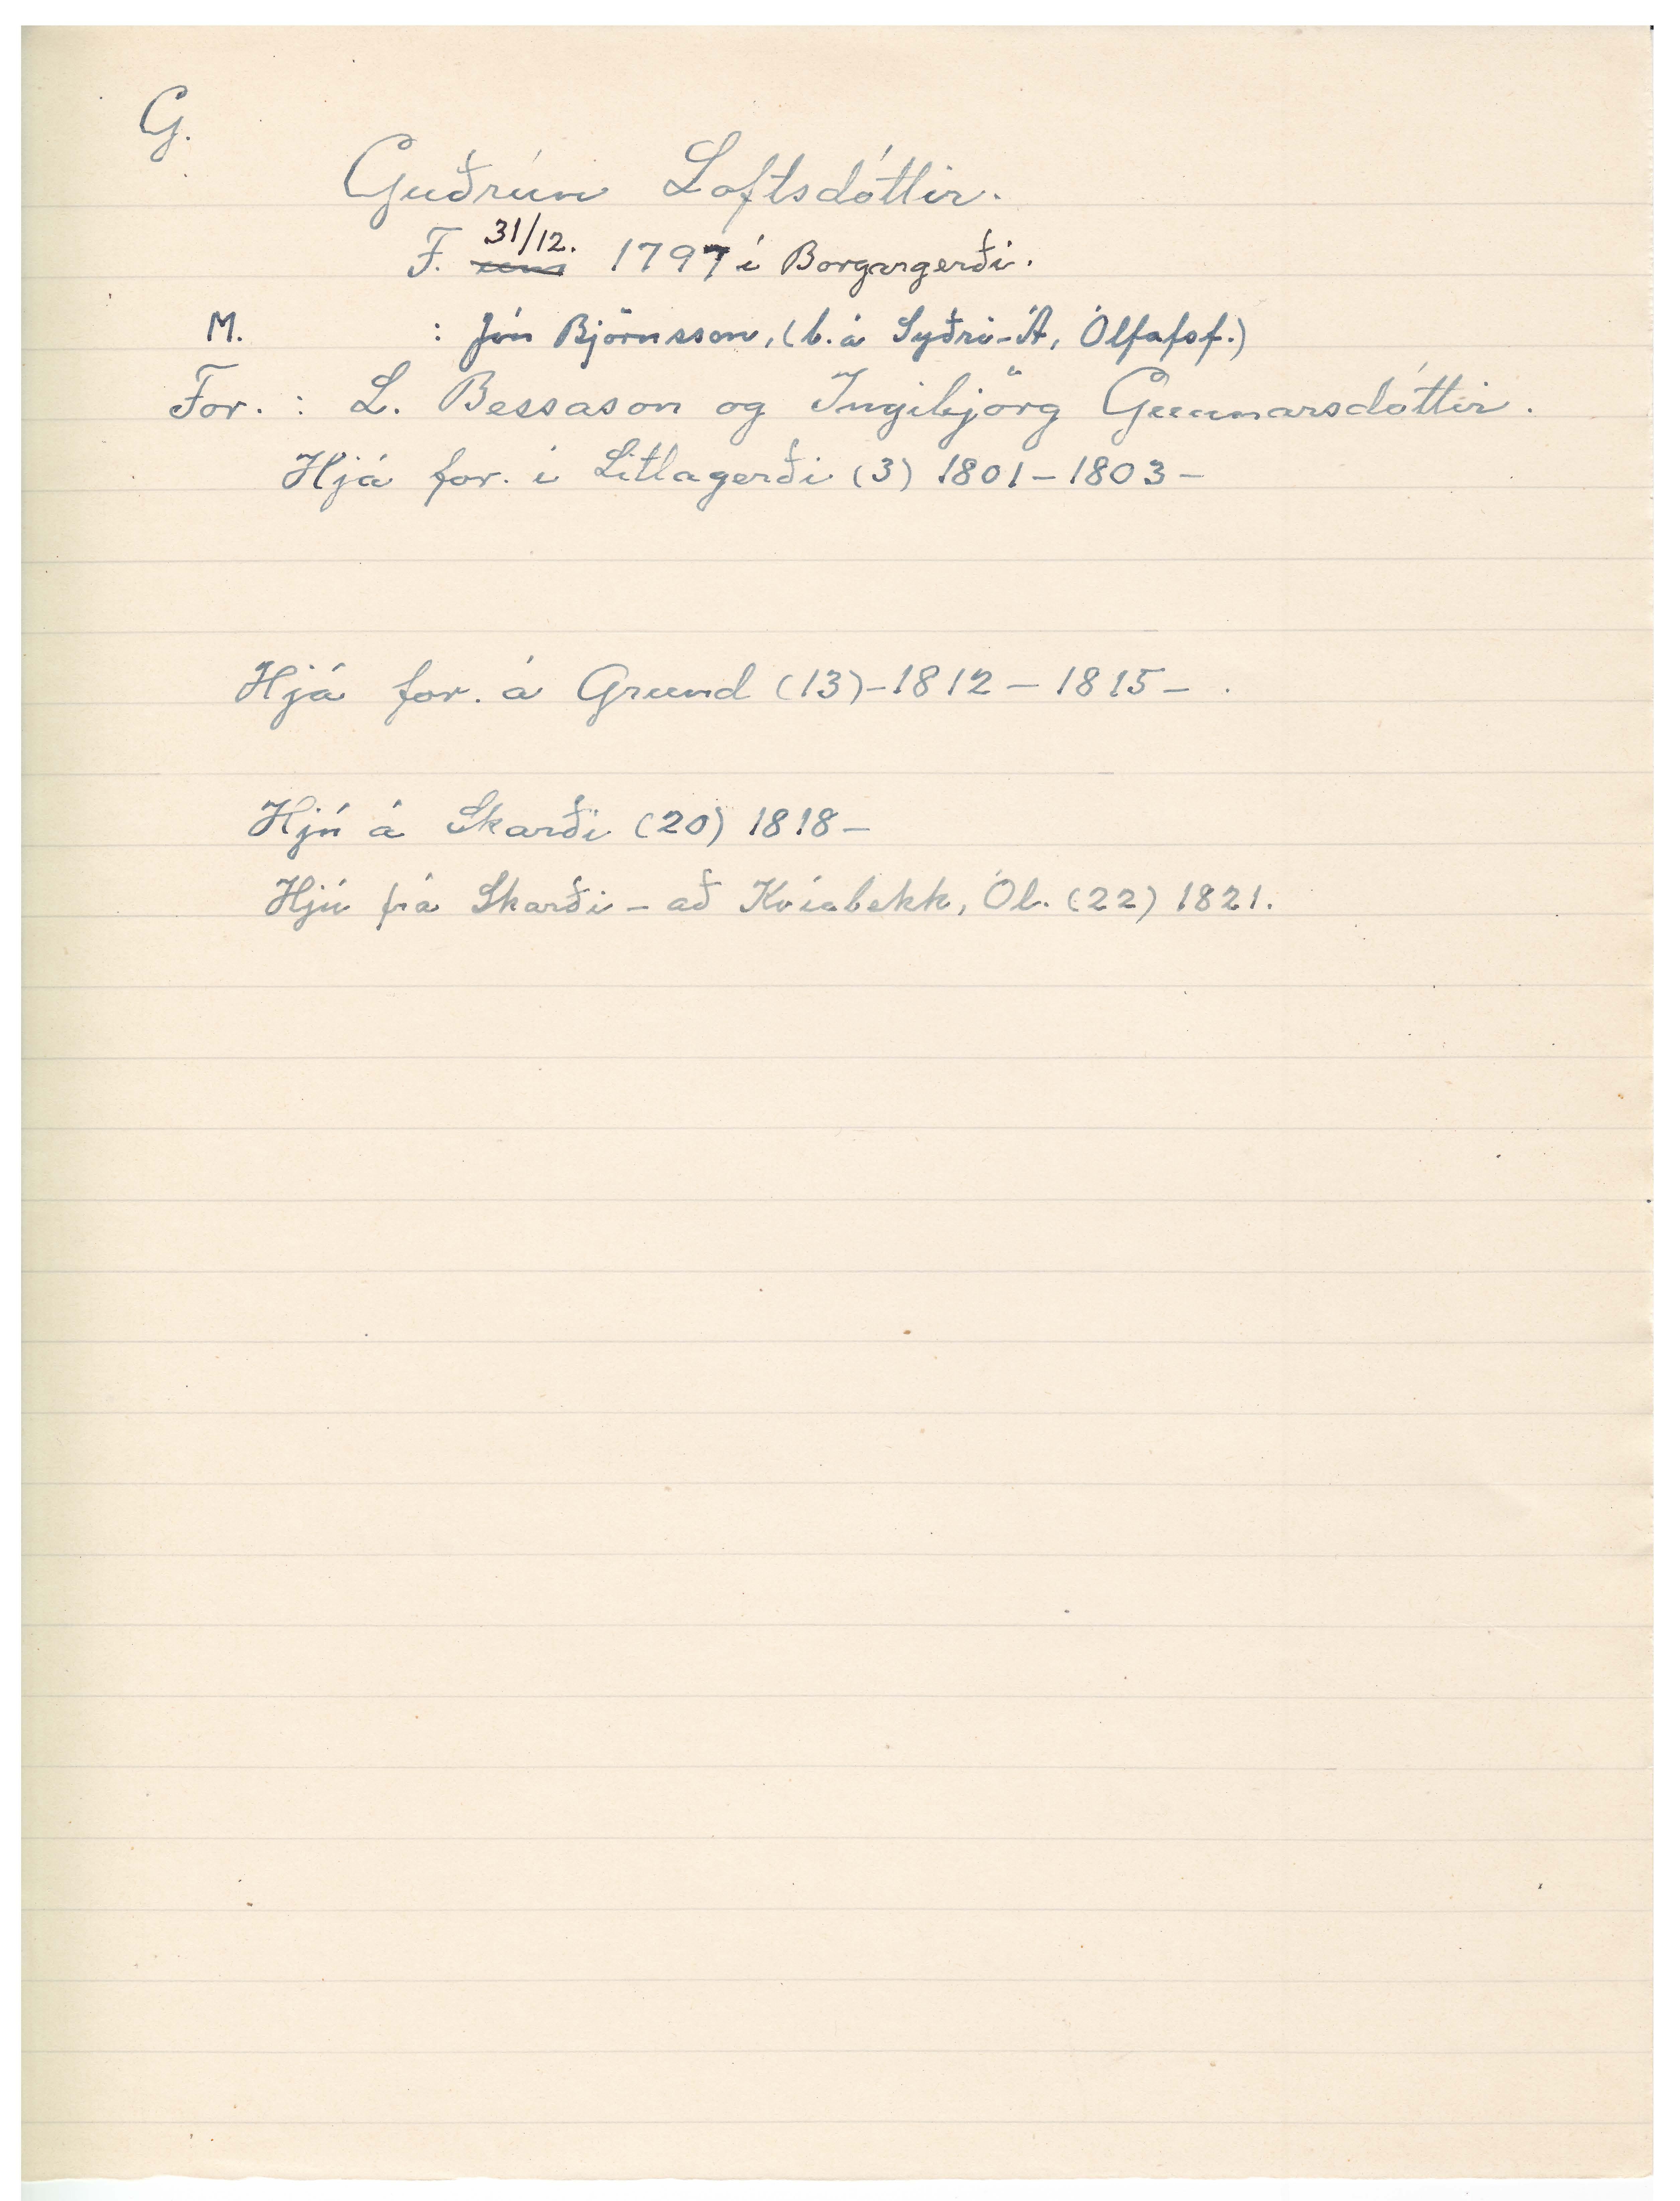 G.
Guðrún Loftsdóttir.
F. 31/12. 1797 í Borgargerði.
M. : Jón Björnsson, (b. á Syðri-Á, Ólfafsf.)
For. : L. Bessason og Ingibjörg Gunnarsdóttir.
Hjá for. í Litlagerði (3) 1801 – 1803 –
Hjá for. á Grund (13) – 1812 – 1815 – .
Hjú á Skarði (20) 1818 –
Hjú frá Skarði – að Kvíabekk, Ól. (22) 1821.